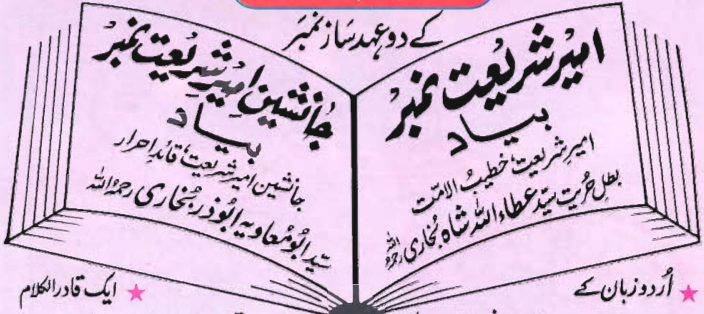 کے دو عہد ساز نمبر
امیرِ شریعت نمبر
بیاد
امیرِ شریعت، خطیبُ الامّت
بطلِ حریت سیّد عطاء اللہ شاہ بُخاری رحمہُ اللہ
جانشین امیرِ شریعت نمبر
بیاد
جانشین امیرِ شریعت، قائدِ احرار
سیّد ابُو مُعاویہ ابُوذر بُخاری رحمہُ اللہ
★ اُردو زبان کے
★ ایک قادرالکلام